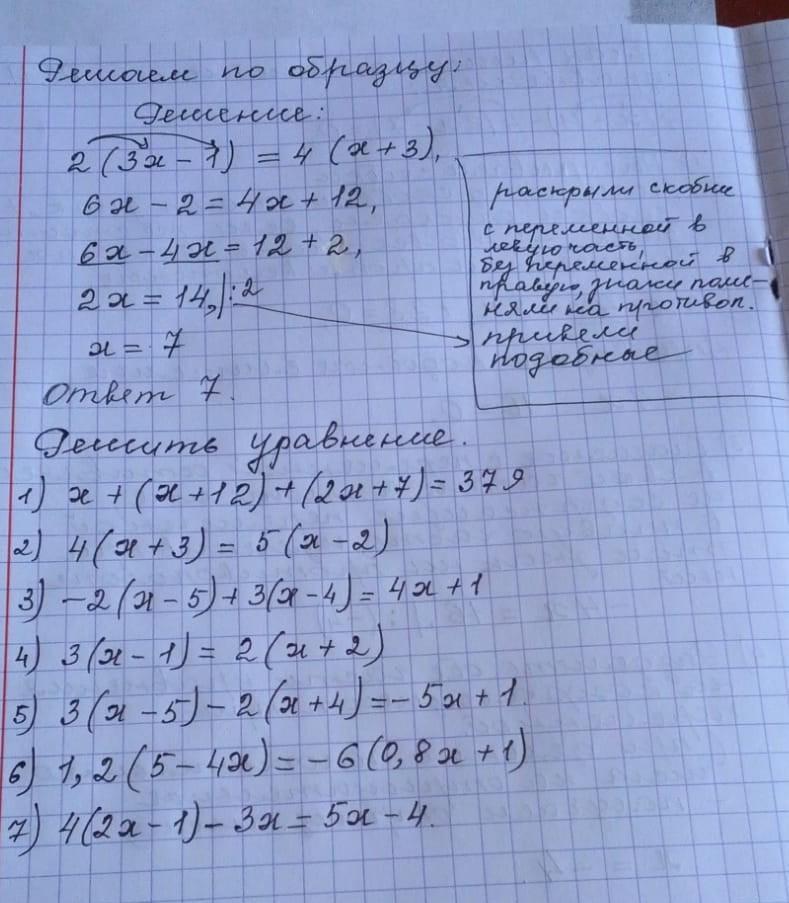 Решаем по образцу:
Решение:
2 (3x - 1) = 4 (x + 3),
6x - 2 = 4x + 12,
6x - 4x = 12 + 2,
2x = 14, |: 2
x = 7
Ответ 7.
раскрыли скобки
с переменной в
левую часть,
без переменной в
правую, знаки поме-
няли на противоп.
привели
подобные
Решить уравнение.
1) x + (x + 12) + (2x + 7) = 379
2) 4(x + 3) = 5(x - 2)
3) -2(x - 5) + 3(x - 4) = 4x + 1
4) 3(x - 1) = 2(x + 2)
5) 3(x - 5) - 2(x + 4) = -5x + 1.
6) 1,2(5 - 4x) = -6(0,8x + 1)
7) 4(2x - 1) - 3x = 5x - 4.